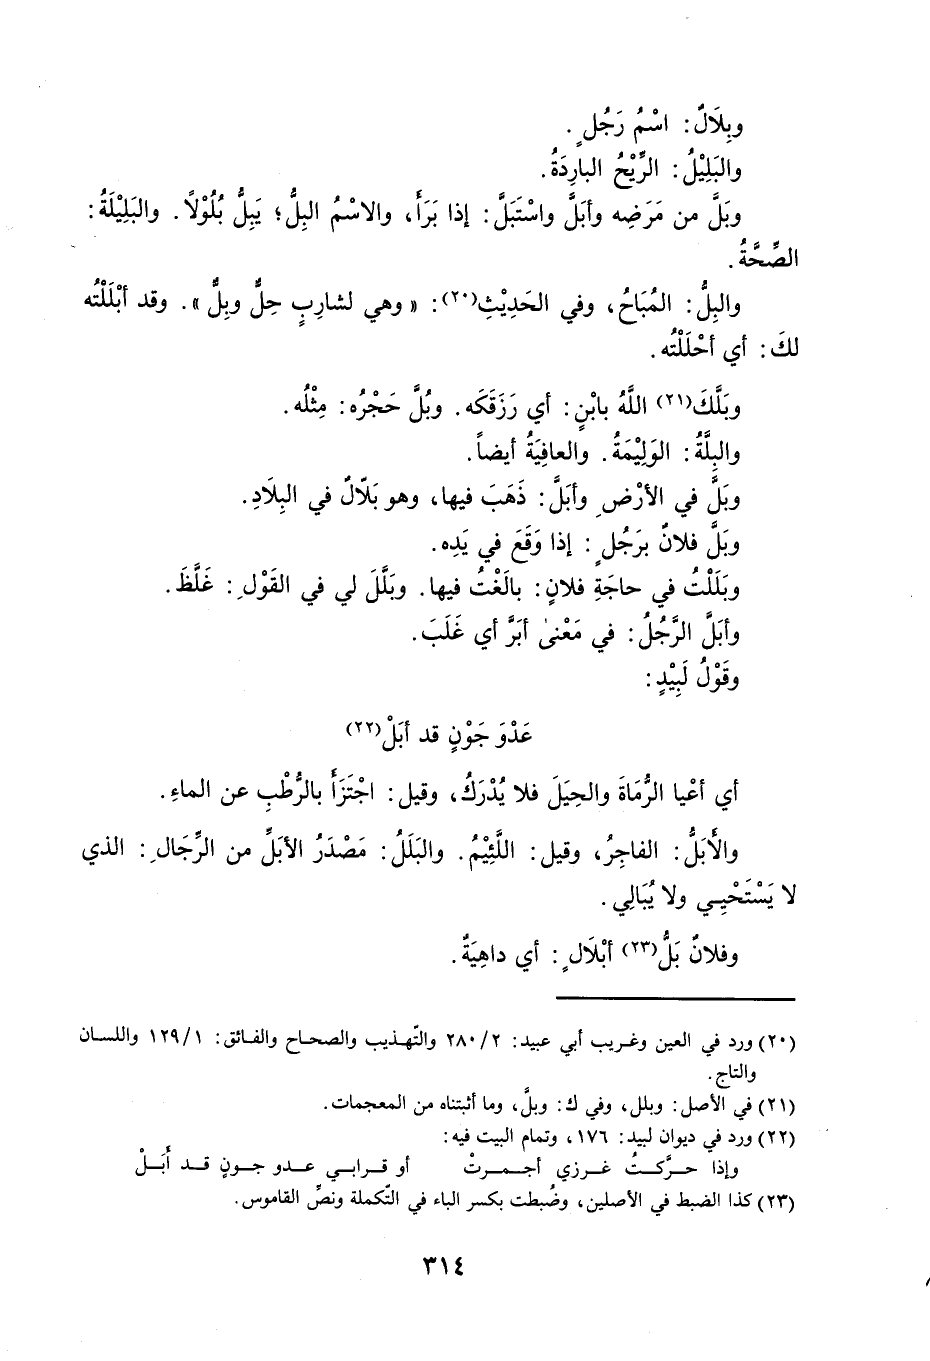 وبِلَالٌ: اسْمُ رَجُلٍ.
والبَلِيْلُ: الرِّيْحُ البارِدَةُ.
وبَلَّ من مَرَضِه وأبَلَّ واسْتَبَلَّ: إذا بَرَأَ، والاسْمُ البِلُّ؛ يَبِلُّ بُلُوْلاً. والبَلِيْلَةُ:
الصِّحَّةُ.
والبِلُّ: المُبَاحُ، وفي الحَدِيْثِ(٢٠): «وهي لشارِبٍ حِلٌّ وبِلٌّ». وقد أبْلَلْتُه
لكَ: أي أحْلَلْتُه.
وبَلَّكَ(٢١) اللَّهُ بابْنٍ: أي رَزَقَكَه. وبُلَّ حَجْرُه: مِثْلُه.
والبِلَّةُ: الوَلِيْمَةُ. والعافِيَةُ أيضاً.
وبَلَّ في الأرْضِ وأبَلَّ: ذَهَبَ فيها، وهو بَلّالٌ في البِلَادِ.
وبَلَّ فلانٌ برَجُلٍ: إذا وَقَعَ في يَدِه.
وبَلَلْتُ في حاجَةِ فلانٍ: بالَغْتُ فيها. وبَلَّلَ لي في القَوْلِ: غَلَّظَ.
وأبَلَّ الرَّجُلُ: في مَعْنىٰ أبَرَّ أي غَلَبَ.
وقَوْلُ لَبِيْدٍ:
عَدْوَ جَوْنٍ قد أبَلْ(٢٢)
أي أعْيا الرُّمَاةَ والحِيَلَ فلا يُدْرَكُ، وقيل: اجْتَزَأَ بالرُّطْبِ عن الماءِ.
والأَبَلُّ: الفاجِرُ، وقيل: اللَّئِيْمُ. والبَلَلُ: مَصْدَرُ الأبَلِّ من الرِّجَالِ: الذي
لا يَسْتَحْيِي ولا يُبَالِي.
وفلانٌ بَلُّ(٢٣) أبْلَالٍ: أي داهِيَةٌ.
(٢٠) ورد في العين وغريب أبي عبيد: ٢/ ٢٨٠ والتّهذيب والصحاح والفائق: ١/ ١٢٩ واللسان
والتاج.
(٢١) في الأصل: وبلل، وفي ك: وبلَّ، وما أثبتناه من المعجمات.
(٢٢) ورد في ديوان لبيد: ١٧٦، وتمام البيت فيه:
وإذا حرَّكتُ غرزي أجمرتْ أو قرابي عدو جونٍ قد أَبَلْ
(٢٣) كذا الضبط في الأصلين، وضُبطت بكسر الباء في التّكملة ونصِّ القاموس.
٣١٤